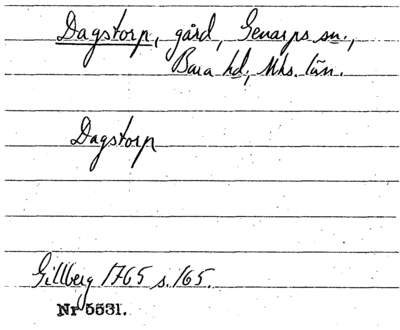 Dagstorp, gård, Genarps sn.,
Bara hd., Mhs. län.
Dagstorp
Gillberg 1765 s. 165.
Nr 5531.